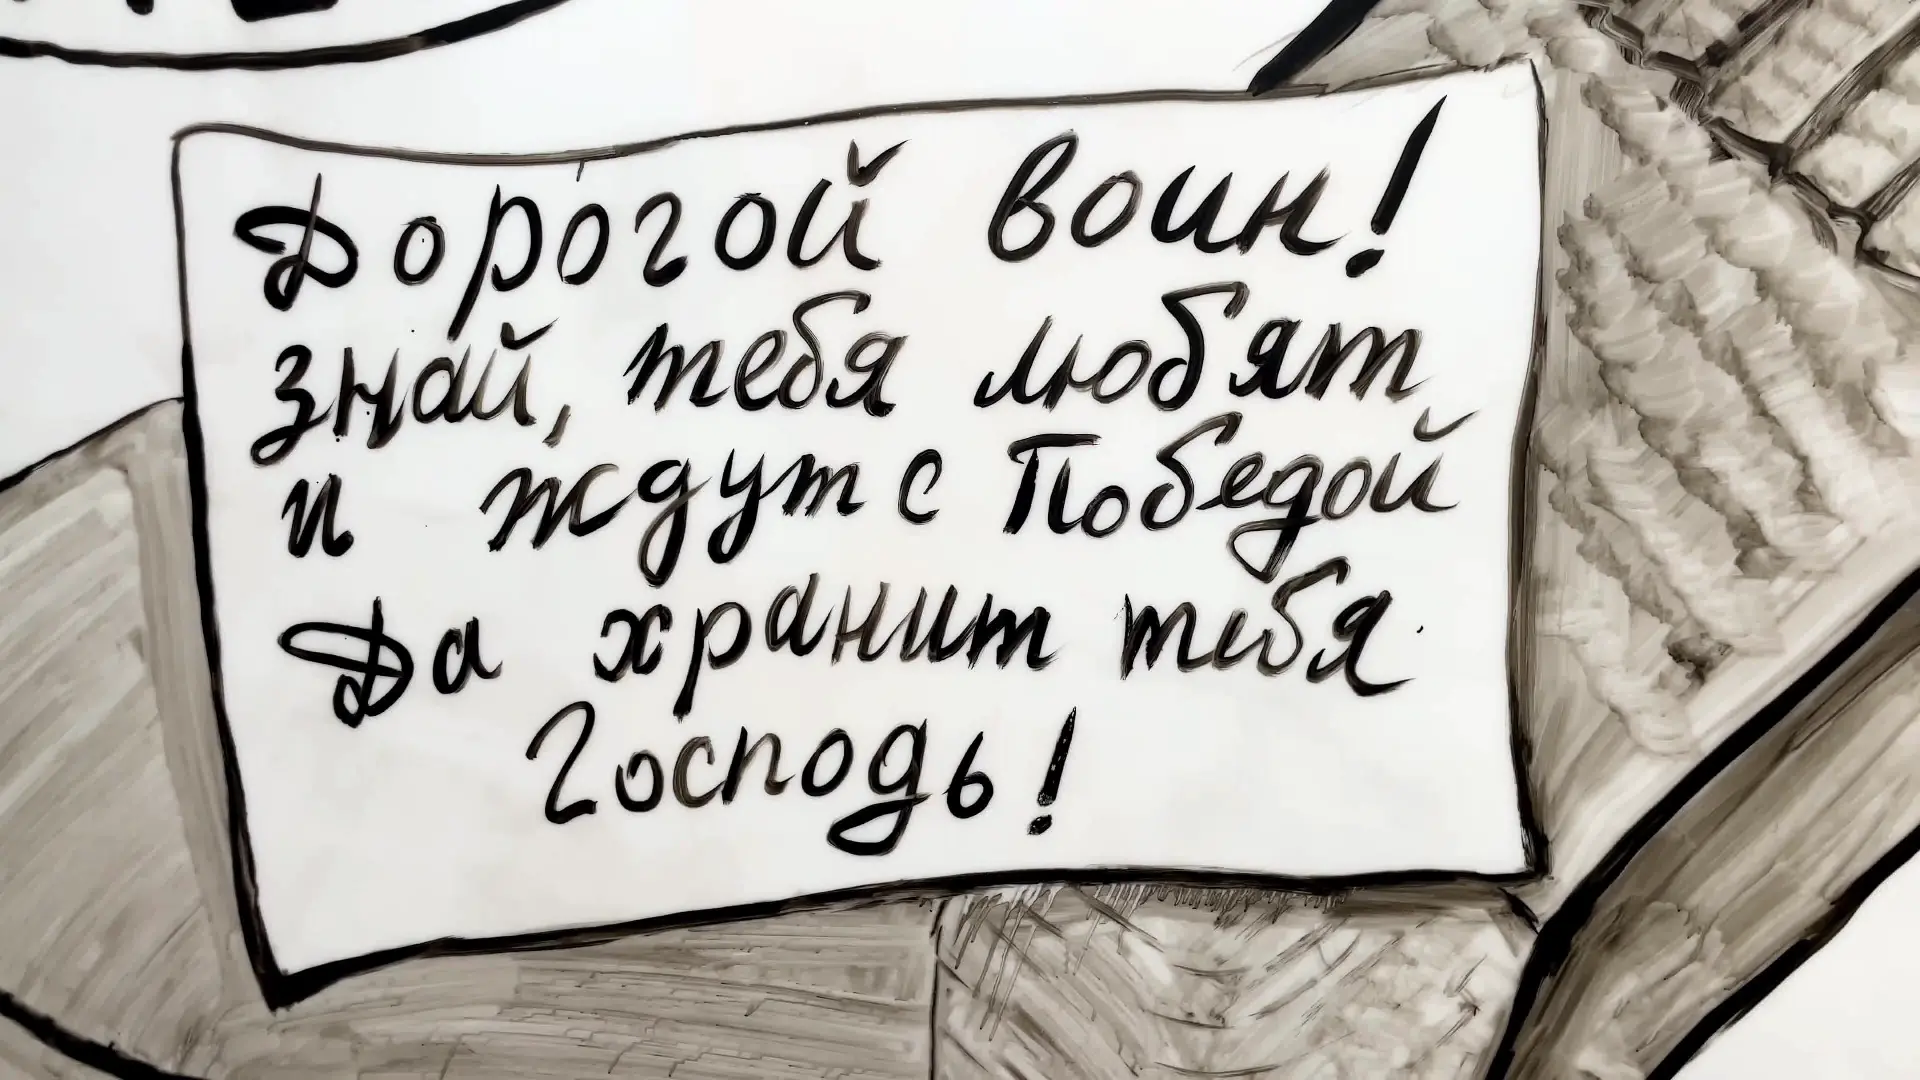 Дорогой воин!
знай, тебя любят
и ждут с Победой
Да хранит тебя
Господь!